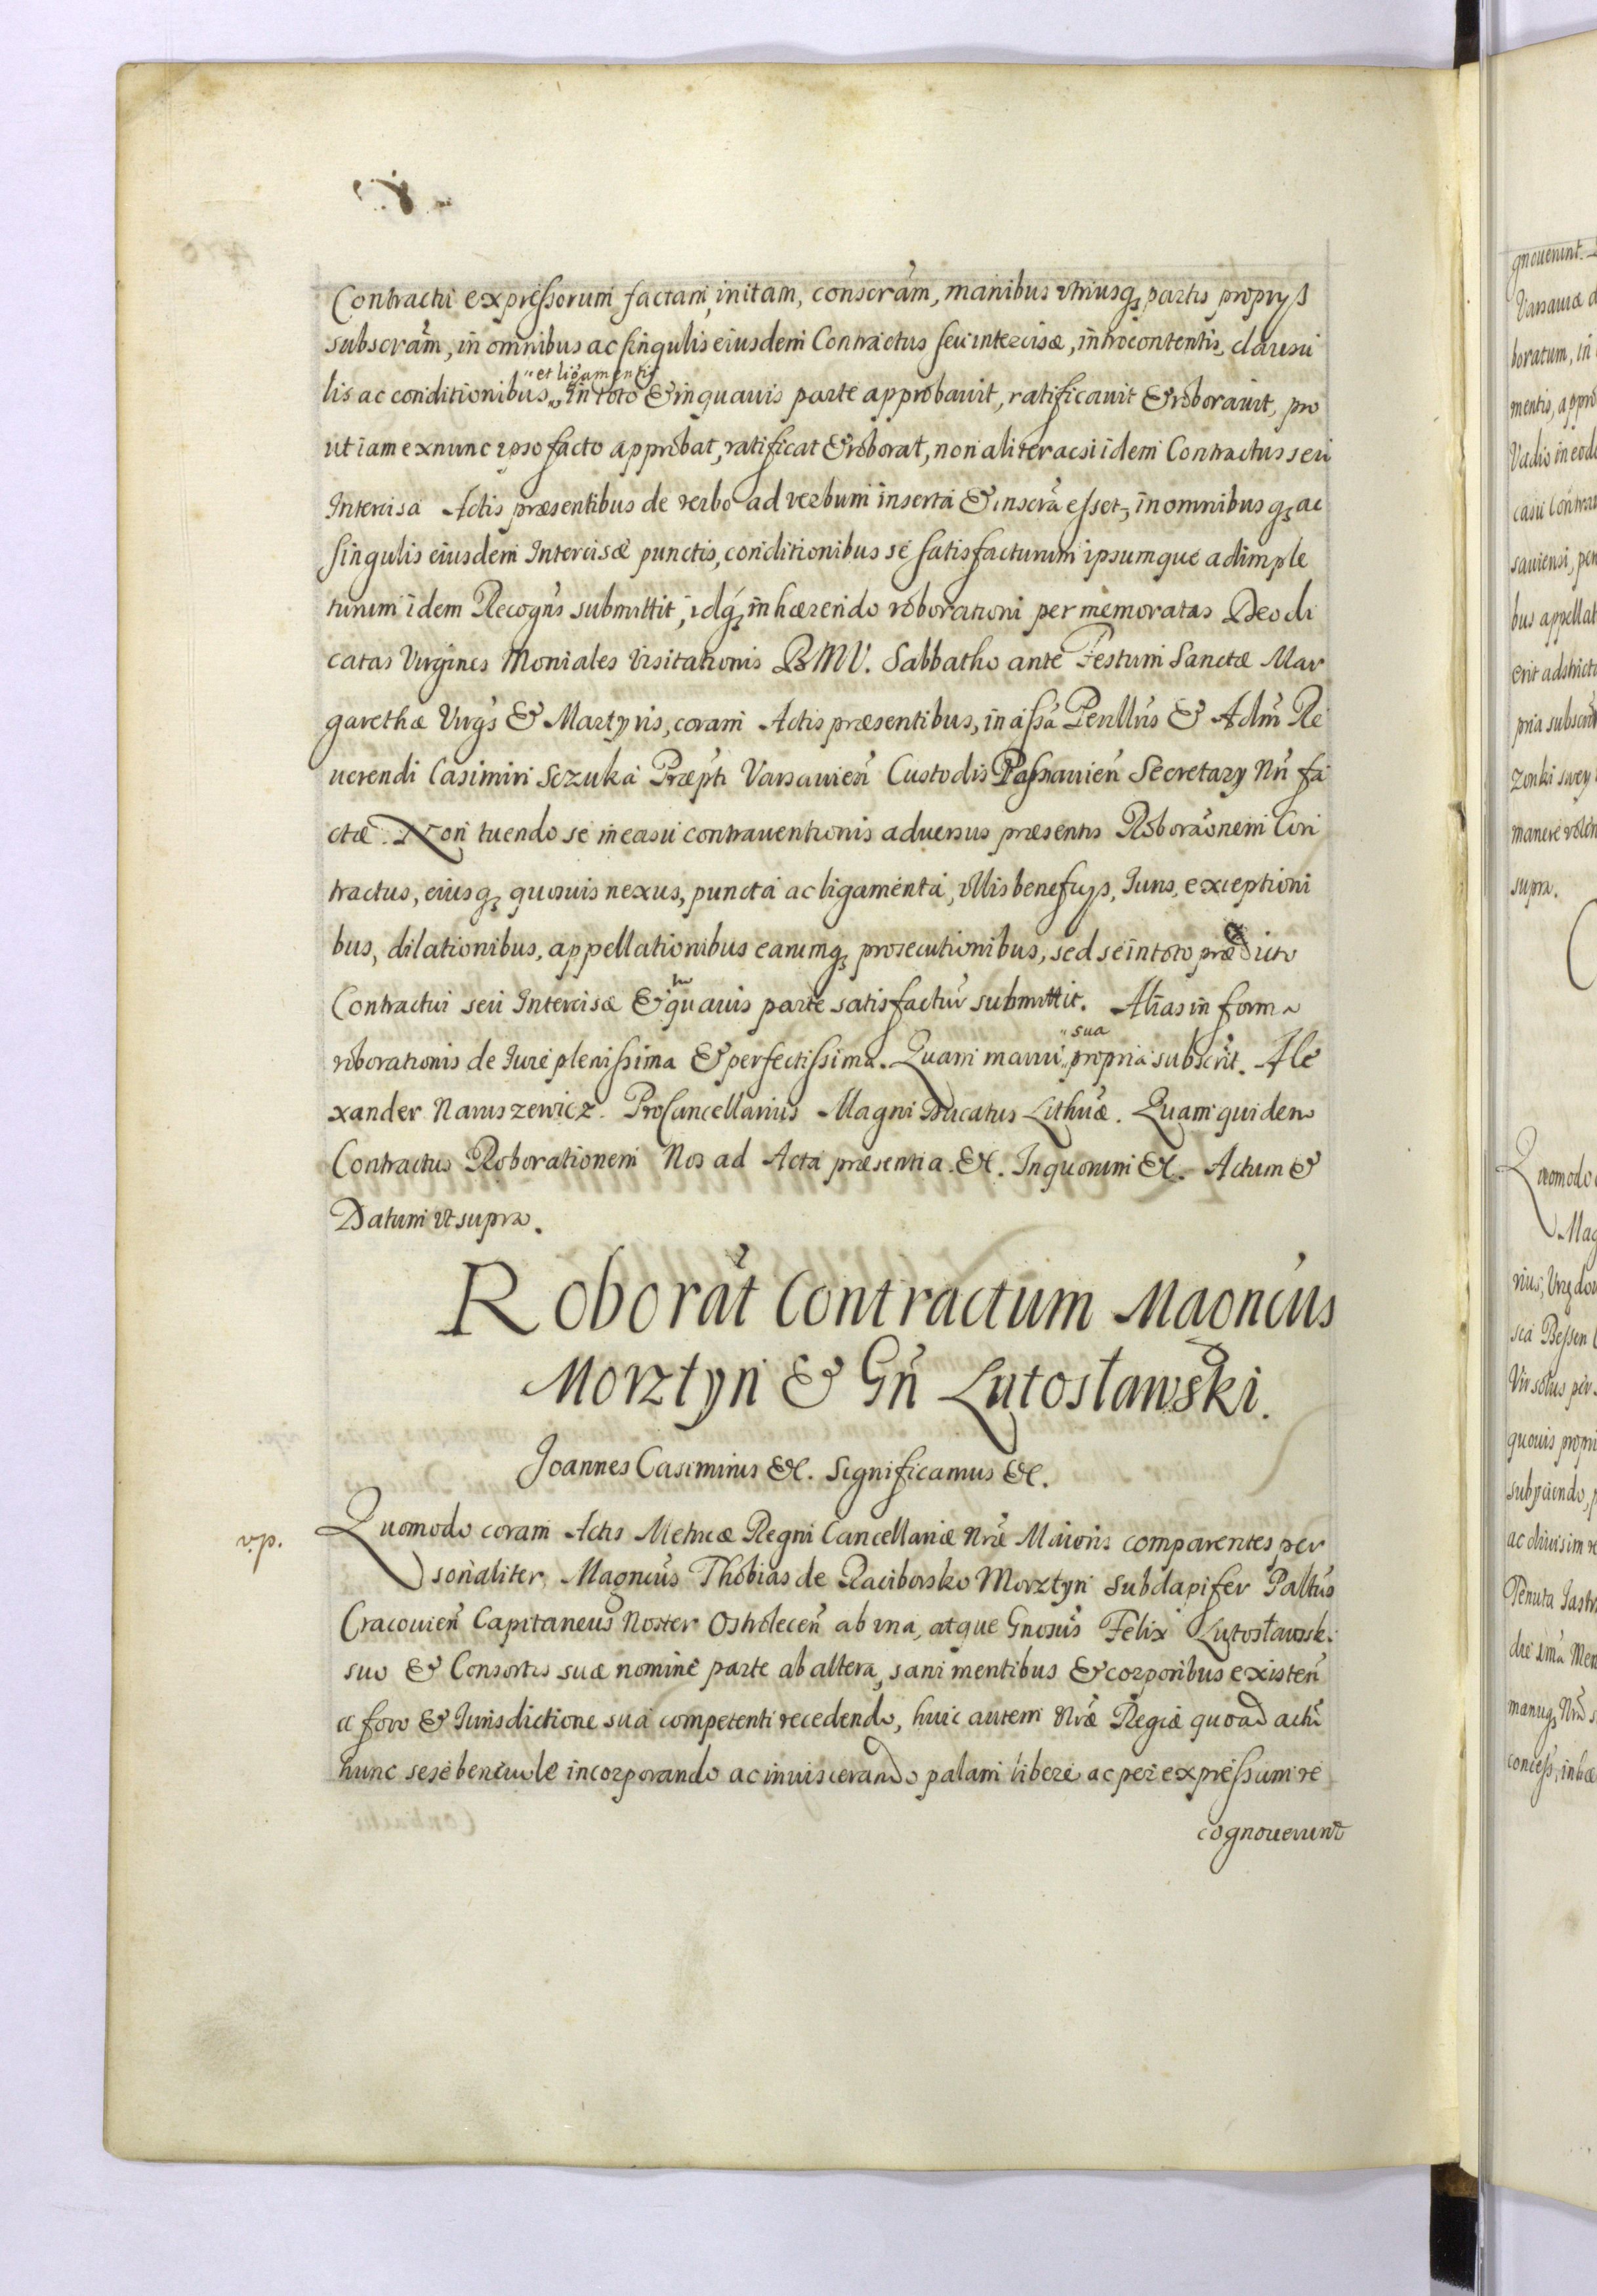 Contractu expressorum factam, initam, conscrãm, manibus vtriusqȝ partis proprijs
subscrãm, in omnibus ac singulis eiusdem Contractus seu intercisæ, introcontentis, clausu
lis ac conditionibus „et ligamentis„ in toto & in quauis parte approbauit, ratificauit & roborauit, pro
ut iam ex nunc ipso facto approbat, ratificat & roborat, non aliter acsi idem Contractus seu
Intercisa Actis præsentibus de verbo ad verbum inserta & inscrã esset, in omnibusqȝ ac
singulis eiusdem Intercisæ punctis, conditionibus se satisfacturum ipsumque adimple
turum idem Recogñs submittit, idqȝ inhærendo roborationi per memoratas Deo di
catas Virgines Moniales Visitationis BMV. Sabbatho ante Festum Sanctæ Mar
garethæ Virgs & Martyris, coram Actis præsentibus, in assã Perillus & Adm̃ Re
uerendi Casimiri Sczuka Præpti Varsauieñ Custodis Passauieñ Secretarij Nri fa
ctæ. Non tuendo se in casu contrauentionis aduersus præsentis Roborãonem Con
tractus, eiusqȝ quosuis nexus, puncta ac ligamenta, vllis beneficijs, Iuris, exceptioni
bus, dilationibus, appellationibus earumqȝ prosecutionibus, sed se in toto prædicto
Contractui seu Intercisæ & in quauis parte satisfacturũ submittit. Alias in forma
roborationis de Iure plenissima & perfectissima. Quam manu „sua„ propria subscrit. Ale
xander Naruszewicz. ProCancellarius Magni Ducatus Lithuæ. Quam quidem
Contractus Roborationem Nos ad Acta præsentia &c. In quorum &c. Actum &
Datum vt supra.
Roborãt Contractum Magncus
Morztyn & Gñ Lutosławski.
Joannes Casimirus &c. Significamus &c.
v.p. Quomodo coram Actis Metricæ Regni Cancellariæ Nræ Maioris comparentes per
sonaliter, Magncus Thobias de Raciborsko Morztyn Subdapifer Paltus
Cracouieñ Capitaneus Noster Ostrolecen̄ ab vna, atque Gnosus Felix Lutosławski
suo & Consortis suæ nomine parte ab altera, sani mentibus & corporibus existeñ
a foro & Iurisdictione sua competenti recedendo, huic autem Nræ Regiæ quoad actũ
hunc sese beneuole incorporando ac inuiscerando palam libere ac per expressum re
cognouerunt